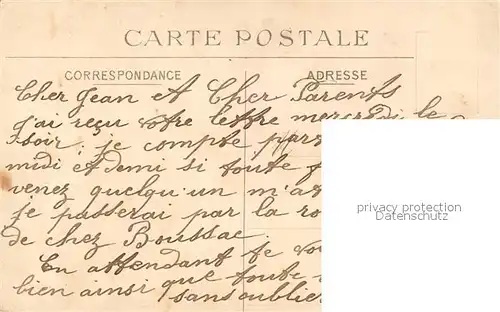 CARTE POSTALE
CORRESPONDANCE
ADRESSE
Cher Jean et Cher Parents
j'ai reçu votre lettre mercredi le
soir; je compte
midi et demi si toute
venez quelqu'un m'a
je passerai par la ro
de chez Boussac.
En attendant je
bien ainsi que toute
sans oublier
privacy protection
Datenschutz